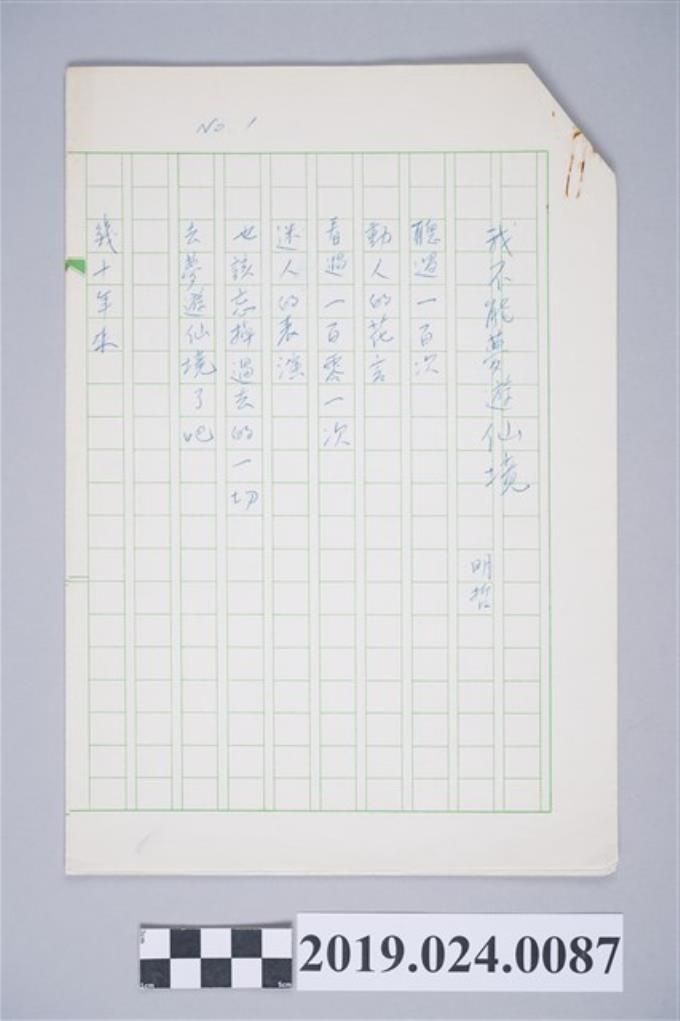 No. 1
我不能夢遊仙境
明哲
聽過一百次
動人的花言
看過一百零一次
迷人的表演
也該忘掉過去的一切
去夢遊仙境了吧
幾十年來
2019.024.0087